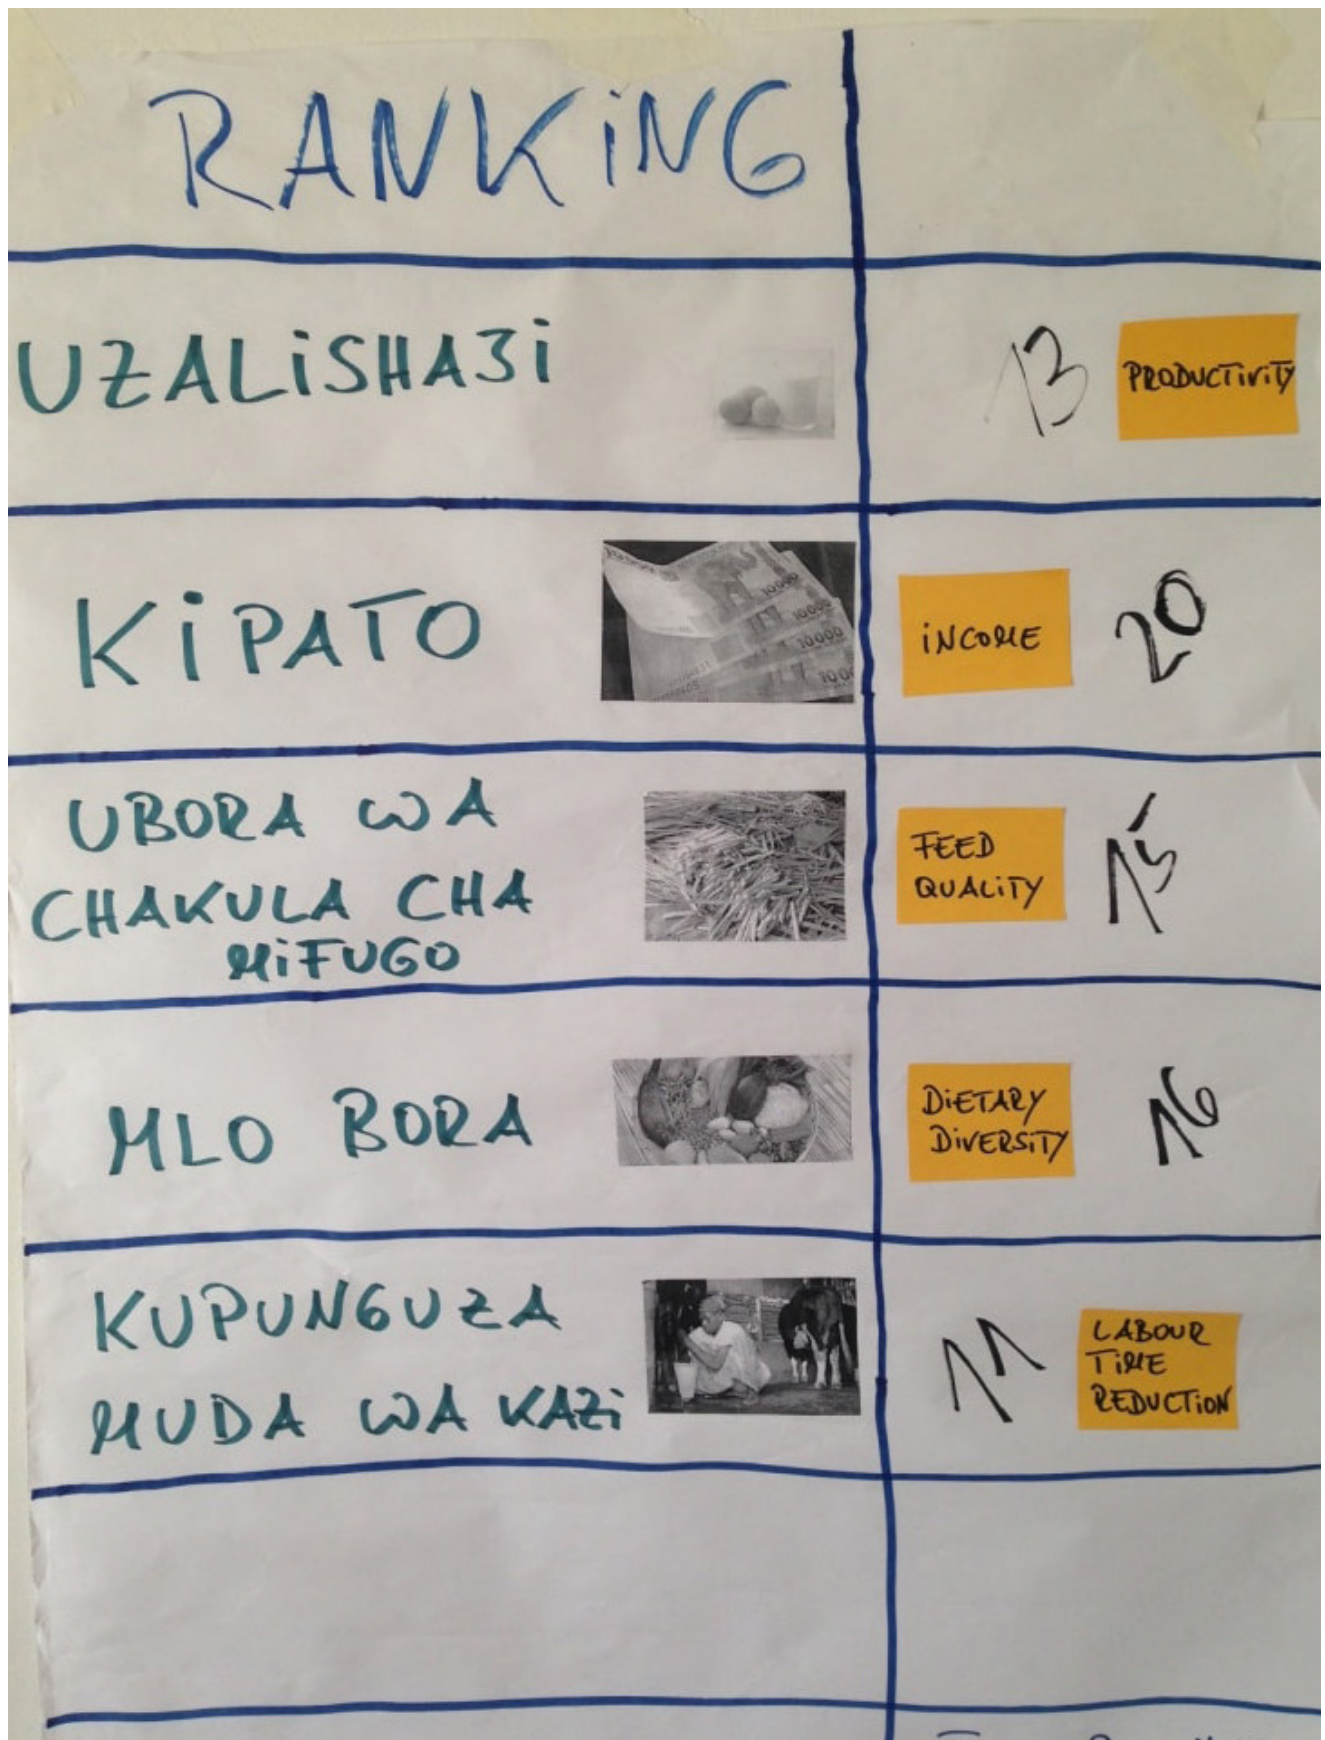 RANKING
UZALISHAJI
13
PRODUCTIVITY
KIPATO
10000
10000
10000
INCOME
20
UBORA WA
CHAKULA CHA
MIFUGO
FEED
QUALITY
15
MLO BORA
DIETARY
DIVERSITY
16
KUPUNGUZA
MUDA WA KAZI
11
LABOUR
TIME
REDUCTION